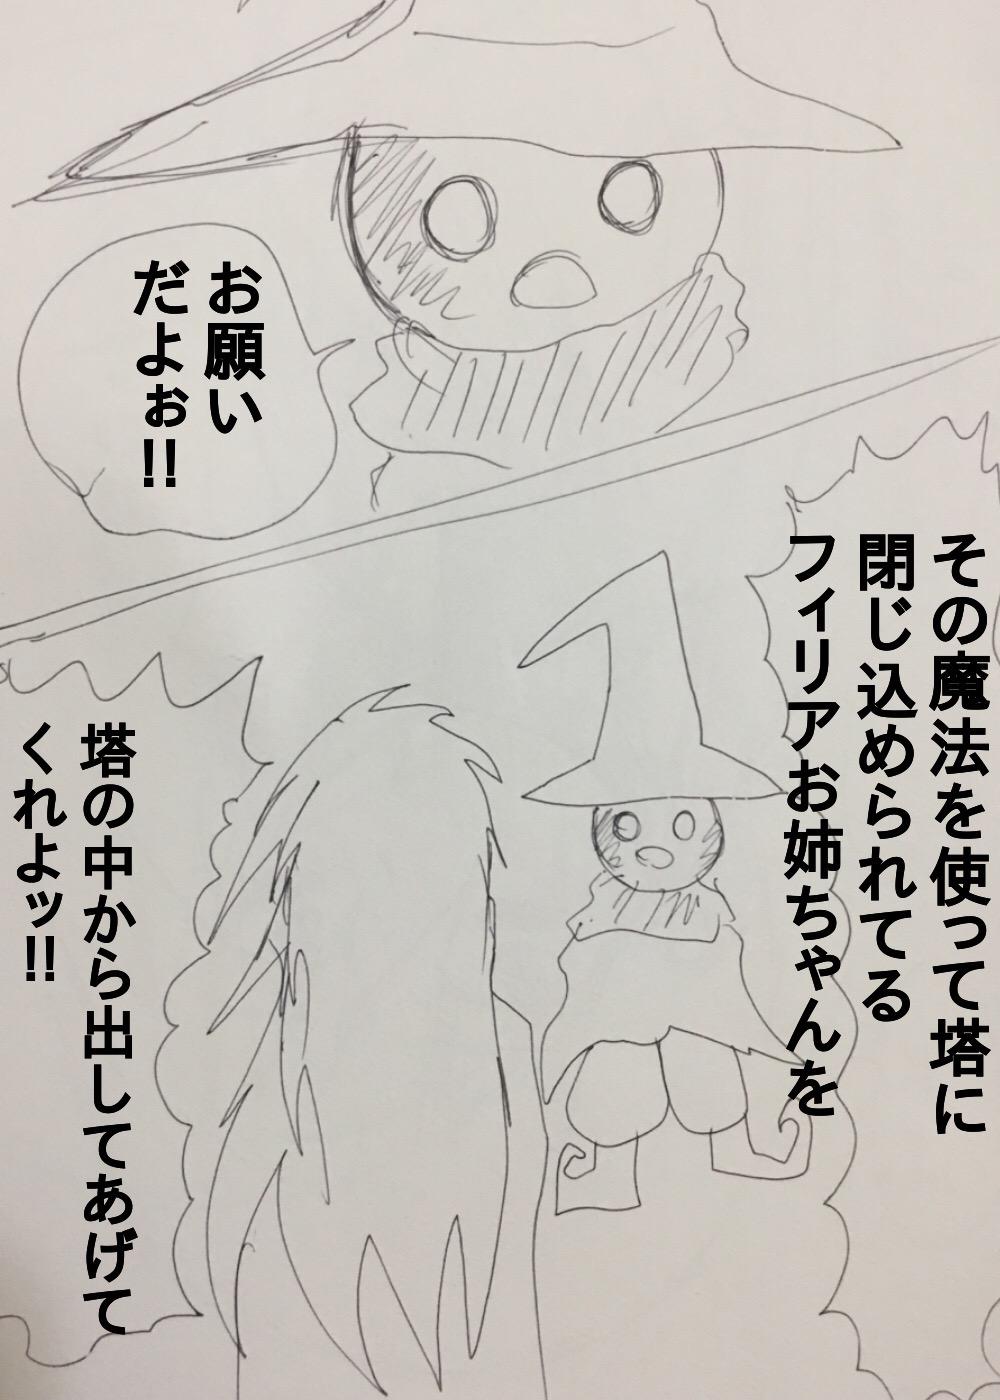 お願い
だよぉ!!
その魔法を使って塔に
閉じ込められてる
フィリアお姉ちゃんを
塔の中から出してあげて
くれよッ!!